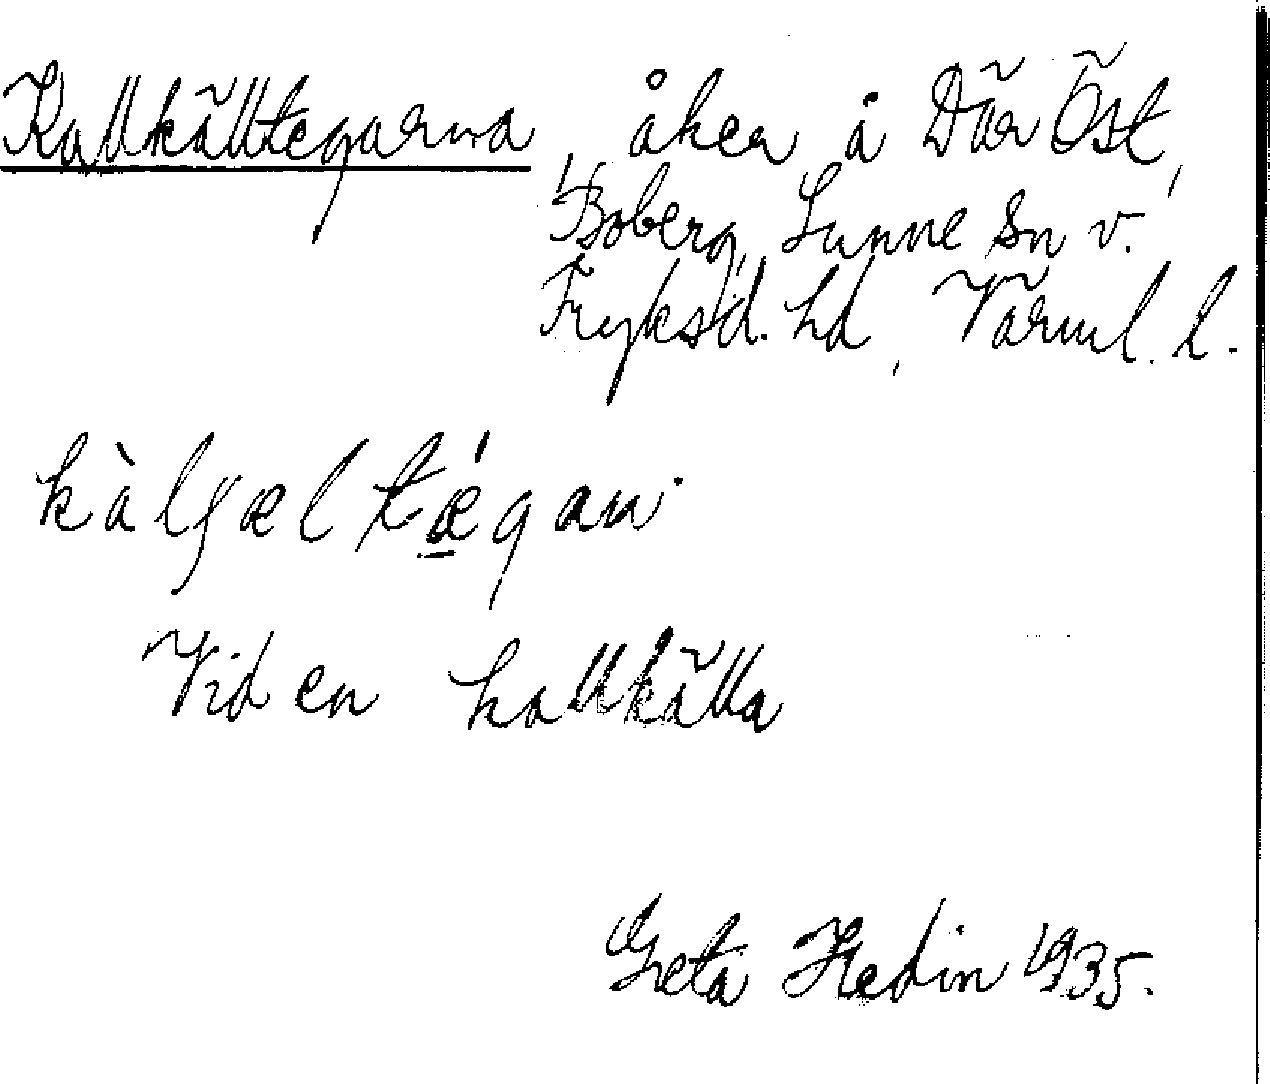 Kallkälltegarna, åker å Där Öst,
Boberg, Sunne sn v.
Fryksd. hd, Värml. l.
kàlɟæl tǽgan.
Vid en kallkälla
Greta Hedin 1935.